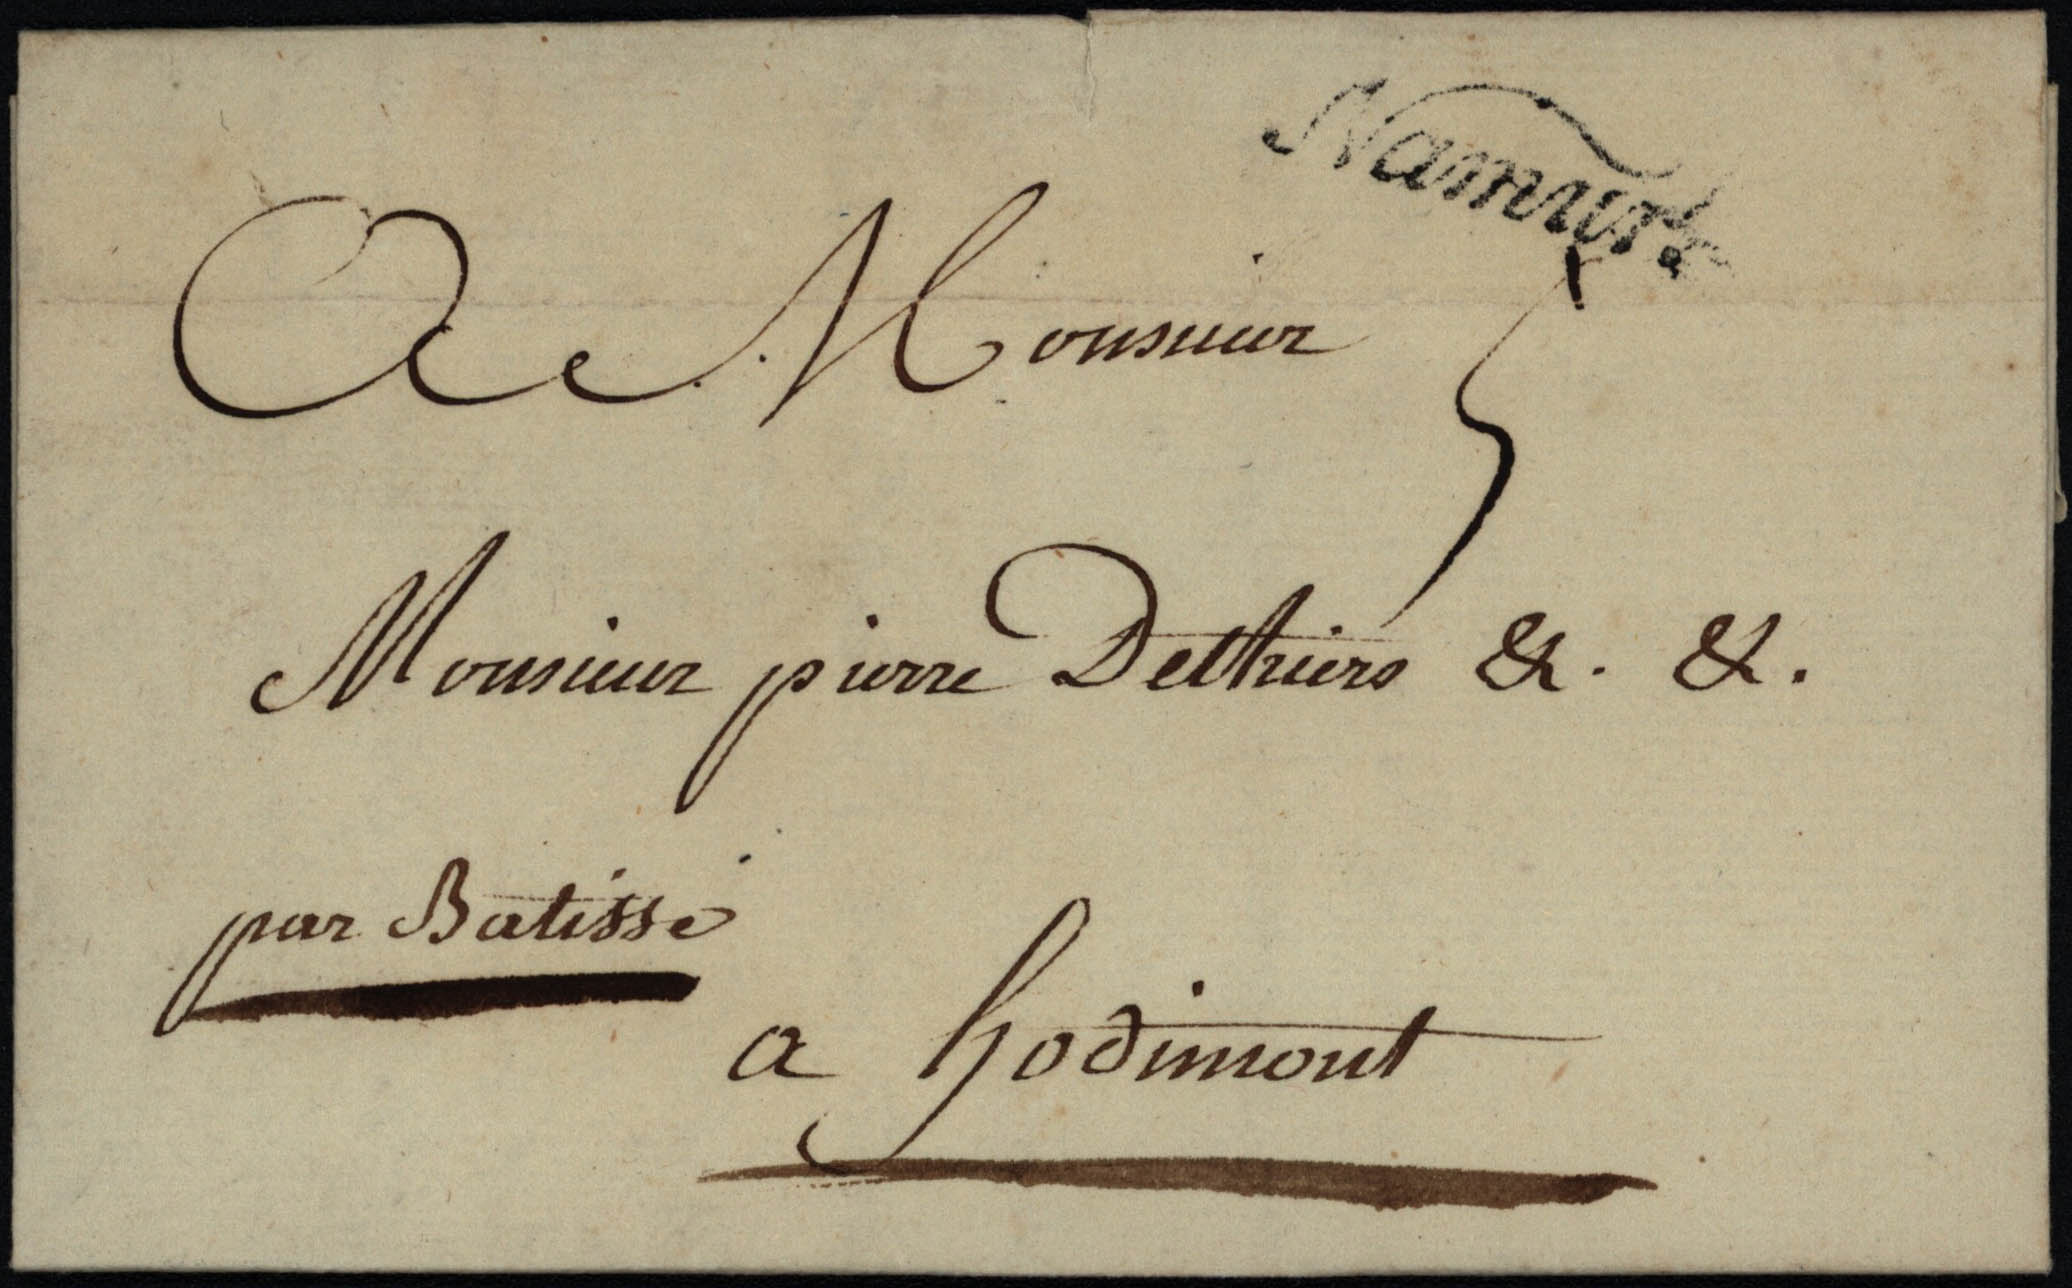 Namur
A Monsieur
5
Monsieur pierre Dethiers &. &.
par Batisse
a hodimont